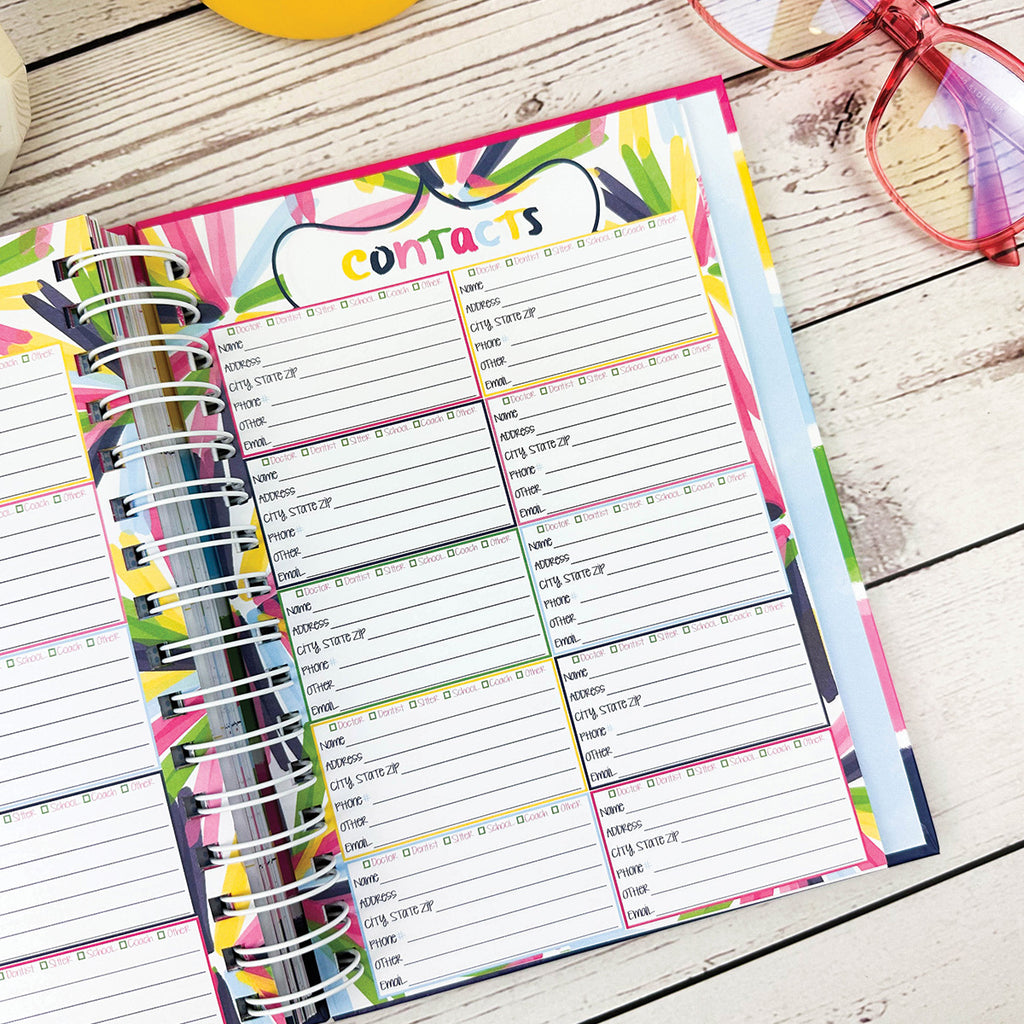 Coach Other
School Coach Other
School Coach Other
Sitter School Coach Other
Sitter School Coach Other
CONTACTS
Doctor Dentist Sitter School Coach Other
Name
Address
City, State Zip
Phone #
Other
Email
Doctor Dentist Sitter School Coach Other
Name
Address
City, State Zip
Phone #
Other
Email
Doctor Dentist Sitter School Coach Other
Name
Address
City, State Zip
Phone #
Other
Email
Doctor Dentist Sitter School Coach Other
Name
Address
City, State Zip
Phone #
Other
Email
Doctor Dentist Sitter School Coach Other
Name
Address
City, State Zip
Phone #
Other
Email
Doctor Dentist Sitter School Coach Other
Name
Address
City, State Zip
Phone #
Other
Email
Doctor Dentist Sitter School Coach Other
Name
Address
City, State Zip
Phone #
Other
Email
Doctor Dentist Sitter School Coach Other
Name
Address
City, State Zip
Phone #
Other
Email
Doctor Dentist Sitter School Coach Other
Name
Address
City, State Zip
Phone #
Other
Email
Doctor Dentist Sitter School Coach Other
Name
Address
City, State Zip
Phone #
Other
Email